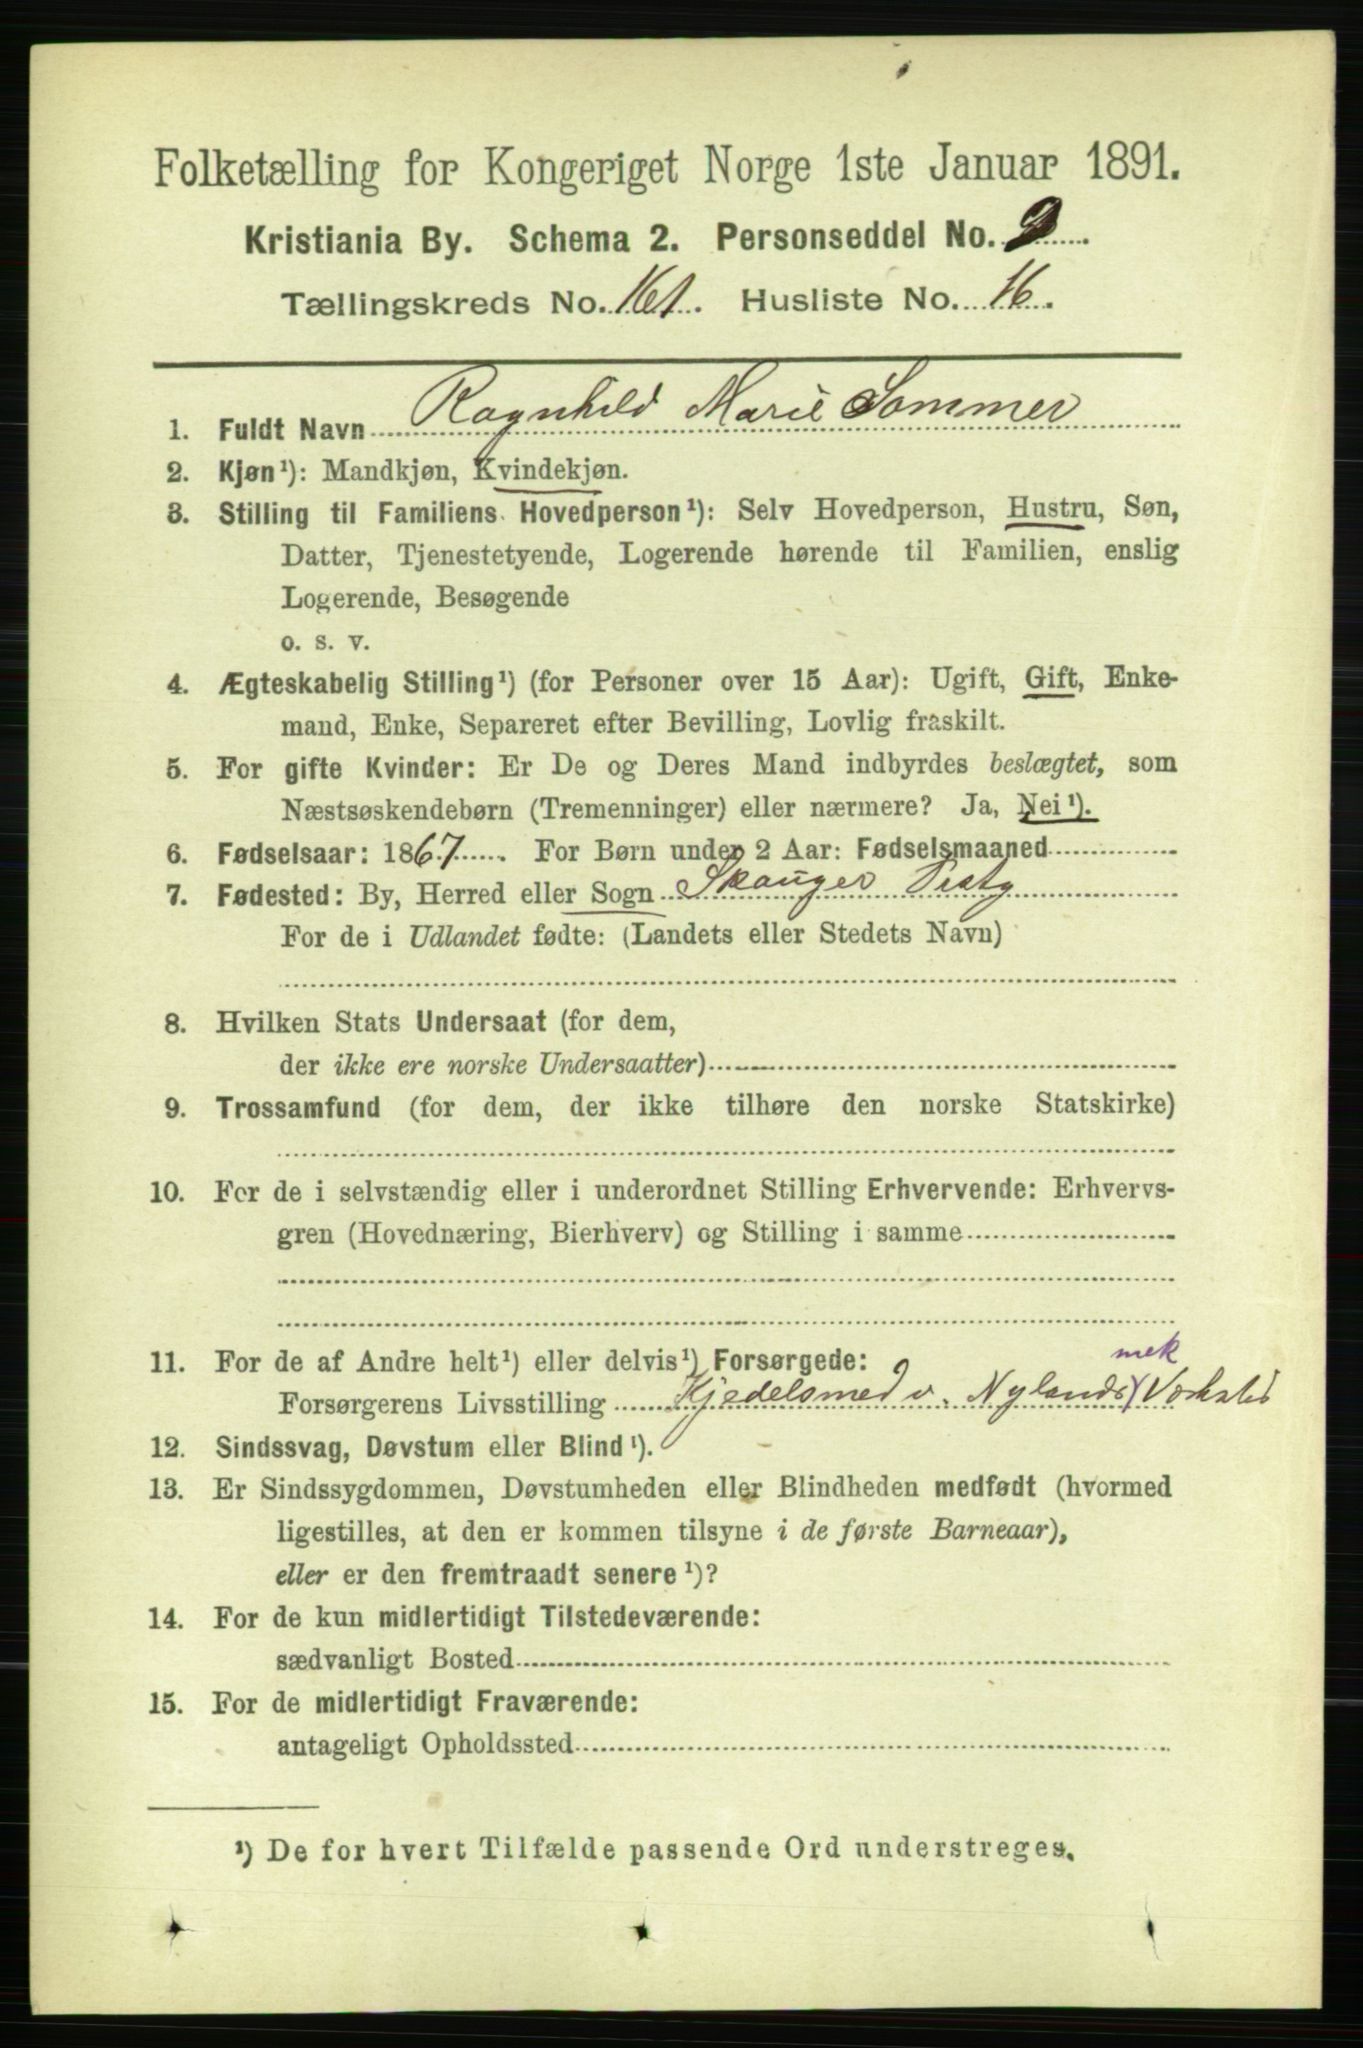 Folketælling for Kongeriget Norge 1ste Januar 1891.
Kristiania By. Schema 2. Personseddel No. 2
Tællingskreds No. 161. Husliste No. 16.
1. Fuldt Navn Ragnhild Marie Sommer
2. Kjøn¹): Mandkjøn, Kvindekjøn.
3. Stilling til Familiens Hovedperson¹): Selv Hovedperson, Hustru, Søn,
Datter, Tjenestetyende, Logerende hørende til Familien, enslig
Logerende, Besøgende
o. s. v.
4. Ægteskabelig Stilling¹) (for Personer over 15 Aar): Ugift, Gift, Enke-
mand, Enke, Separeret efter Bevilling, Lovlig fraskilt.
5. For gifte Kvinder: Er De og Deres Mand indbyrdes beslægtet, som
Næstsøskendebørn (Tremenninger) eller nærmere? Ja, Nei¹).
6. Fødselsaar: 1867. For Børn under 2 Aar: Fødselsmaaned
7. Fødested: By, Herred eller Sogn Skauger Prstg
For de i Udlandet fødte: (Landets eller Stedets Navn)
8. Hvilken Stats Undersaat (for dem,
der ikke ere norske Undersaatter)
9. Trossamfund (for dem, der ikke tilhøre den norske Statskirke)
10. For de i selvstændig eller i underordnet Stilling Erhvervende: Erhvervs-
gren (Hovednæring, Bierhverv) og Stilling i samme
11. For de af Andre helt¹) eller delvis¹) Forsørgede:
mek
Forsørgerens Livsstilling Kjedelsmed v. Nylands Værksted
12. Sindssvag, Døvstum eller Blind¹).
13. Er Sindssygdommen, Døvstumheden eller Blindheden medfødt (hvormed
ligestilles, at den er kommen tilsyne i de første Barneaar),
eller er den fremtraadt senere¹)?
14. For de kun midlertidigt Tilstedeværende:
sædvanligt Bosted
15. For de midlertidigt Fraværende:
antageligt Opholdssted
¹) De for hvert Tilfælde passende Ord understreges.